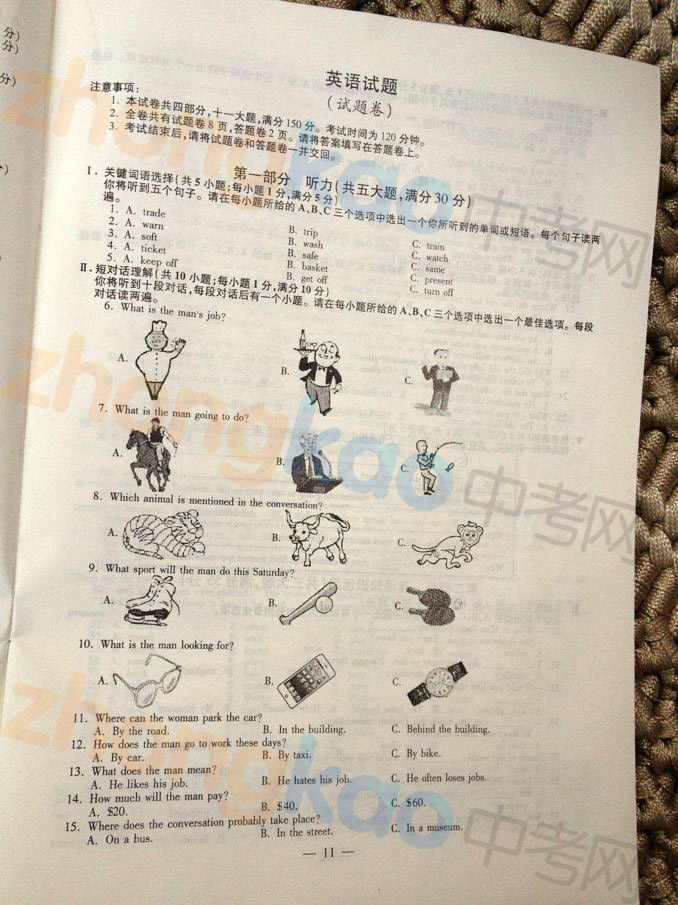 分)
分)
分)
英语试题
(试题卷)
注意事项:
1. 本试卷共四部分,十一大题,满分150分。考试时间为120分钟。
2. 全卷共有试题卷8页,答题卷2页。请将答案填写在答题卷上。
3. 考试结束后,请将试题卷和答题卷一并交回。
第一部分 听力(共五大题,满分30分)
Ⅰ. 关键词语选择(共5小题;每小题1分,满分5分)
你将听到五个句子。请在每小题所给的A、B、C三个选项中选出一个你所听到的单词或短语。每个句子读两
遍。
1. A. trade B. trip C. train
2. A. warn B. wash C. watch
3. A. soft B. safe C. same
4. A. ticket B. basket C. present
5. A. keep off B. get off C. turn off
Ⅱ. 短对话理解(共10小题;每小题1分,满分10分)
你将听到十段对话,每段对话后有一个小题。请在每小题所给的A、B、C三个选项中选出一个最佳选项。每段
对话读两遍。
6. What is the man's job?
A. B. C.
7. What is the man going to do?
A. B. C.
8. Which animal is mentioned in the conversation?
A. B. C.
9. What sport will the man do this Saturday?
A. B. C.
10. What is the man looking for?
A. B. C.
11. Where can the woman park the car?
A. By the road. B. In the building. C. Behind the building.
12. How does the man go to work these days?
A. By car. B. By taxi. C. By bike.
13. What does the man mean?
A. He likes his job. B. He hates his job. C. He often loses jobs.
14. How much will the man pay?
A. $20. B. $40. C. $60.
15. Where does the conversation probably take place?
A. On a bus. B. In the street. C. In a museum.
— 11 —
zhongkao 中考网
zhongkao 中考网
zhongkao 中考网